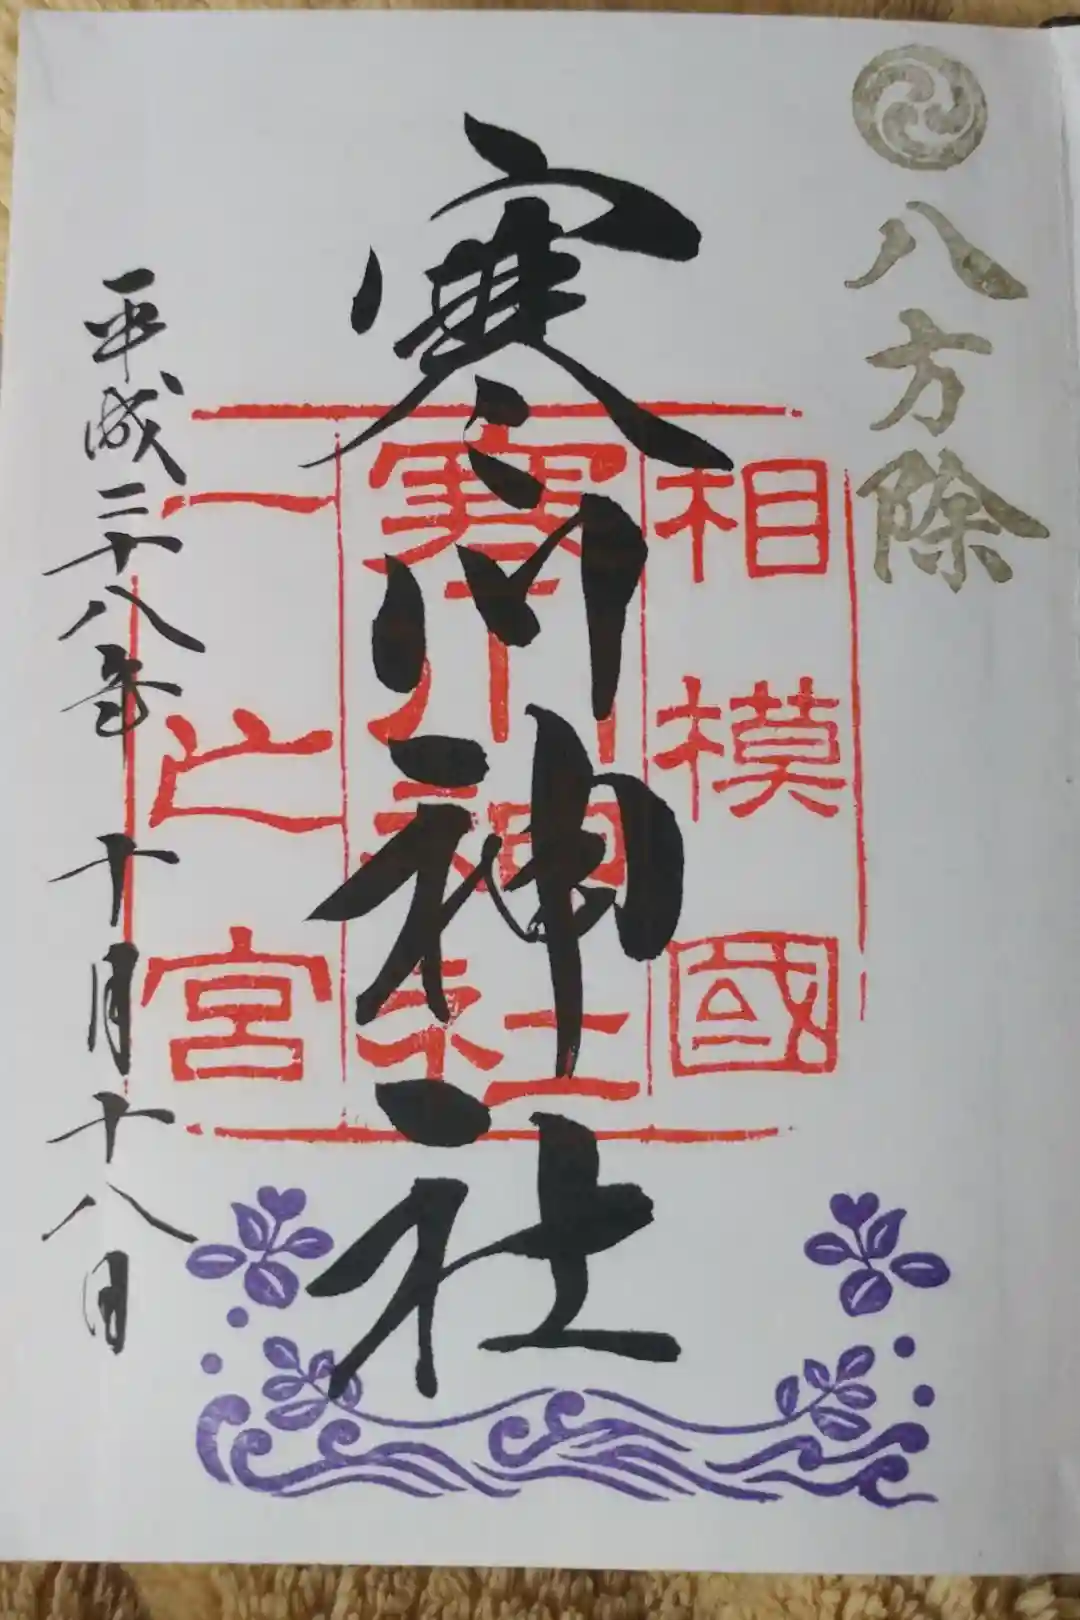 八方除
相模國
寒川神社
一之宮
寒川神社
平成二十八年 十月十八日